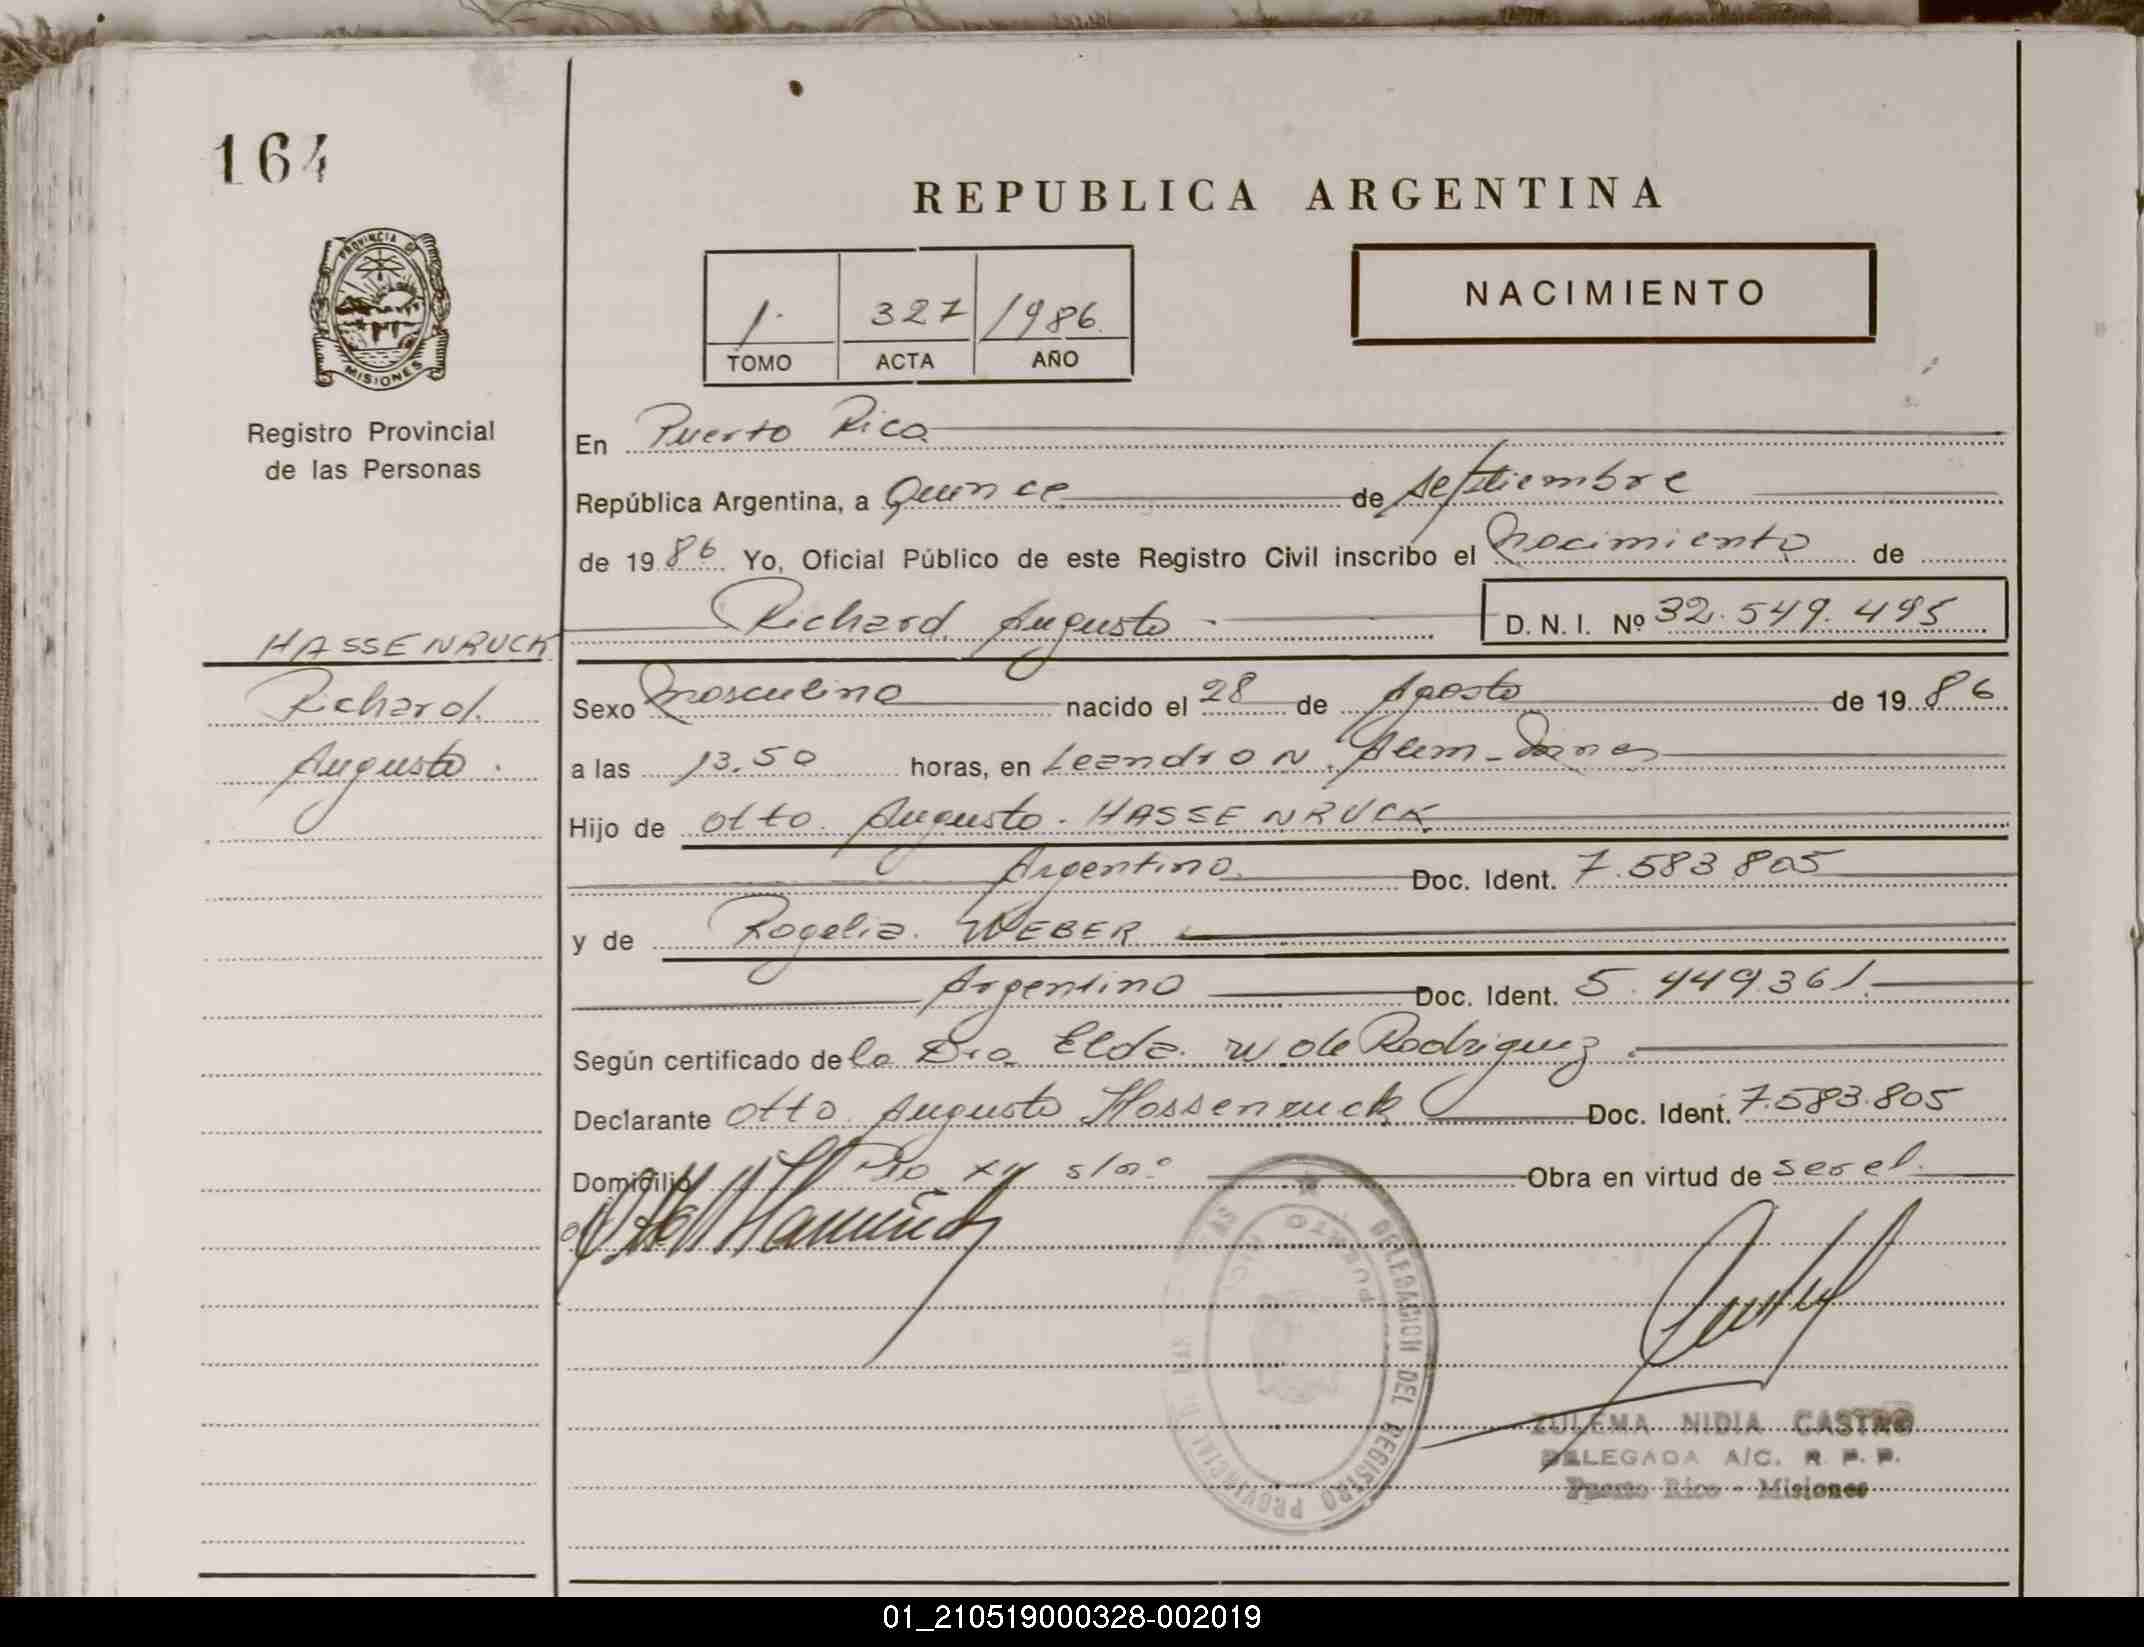 164
REPUBLICA ARGENTINA
PROVINCIA DE
MISIONES
1. 327 1986
TOMO ACTA AÑO
NACIMIENTO
Registro Provincial
de las Personas
En Puerto Rico
República Argentina, a Quince de septiembre
de 1986 Yo, Oficial Público de este Registro Civil inscribo el nacimiento de
Richard Augusto D. N. I. Nº 32.549.495
HASSENRUCK
Richard
Augusto.
Sexo masculino nacido el 28 de Agosto de 1986
a las 13.50 horas, en Leandro N. Alem -
Hijo de Otto Augusto. HASSENRUCK
Argentino. Doc. Ident. 7.583.805
y de Rogelia. WEBER
Argentino Doc. Ident. 5.449361.
Según certificado de la Dra Elda. W de Rodriguez.
Declarante Otto Augusto Hassenruck Doc. Ident. 7.583.805
Domicilio Pio XII s/nº Obra en virtud de ser el.
DELEGACION DEL REGISTRO PROVINCIAL DE LAS
PUERTO RICO
ZULEMA NIDIA CASTRO
DELEGADA A/C. R. P. P.
Puerto Rico - Misiones
01_210519000328-002019